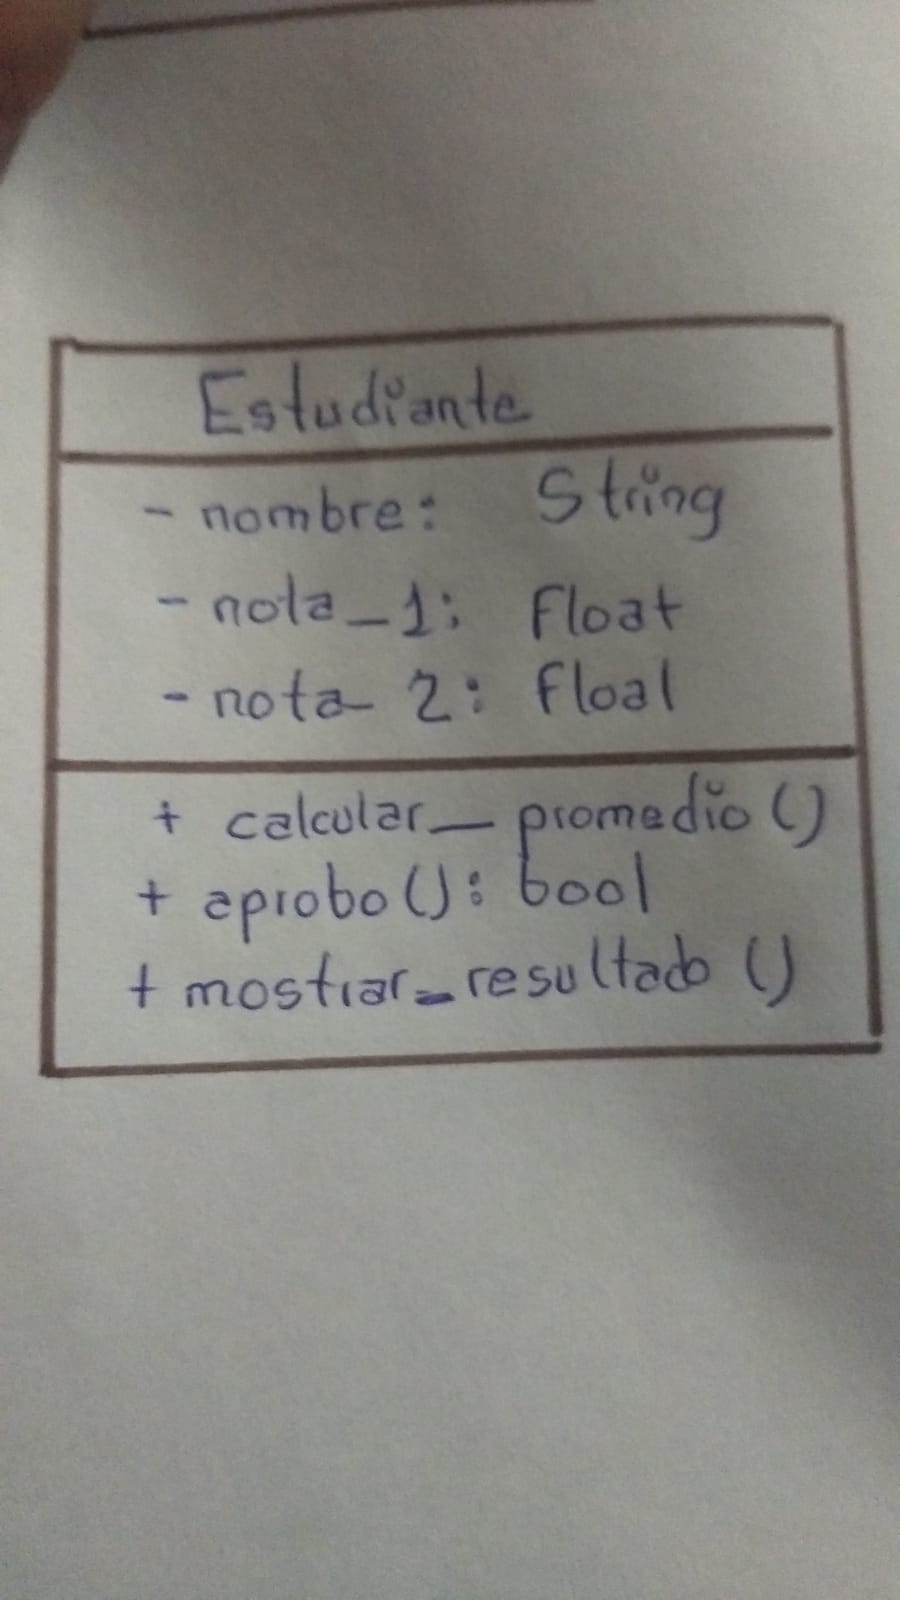 Estudiante
- nombre: String
- nota_1: Float
- nota 2: Float
+ calcular_promedio()
+ aprobo(): bool
+ mostrar_resultado()